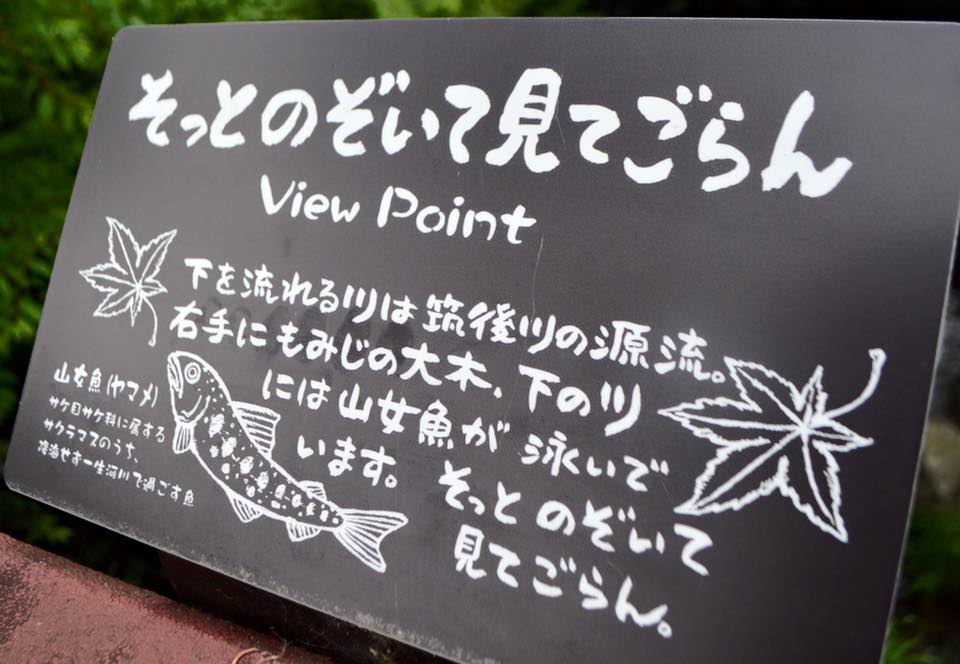 そっとのぞいて見てごらん
View Point
下を流れる川は筑後川の源流。
右手にもみじの大木、下の川
には山女魚が泳いで
います。そっとのぞいて
見てごらん。
山女魚(ヤマメ)
サケ目サケ科に属する
サクラマスのうち、
降海せず一生河川で過ごす魚